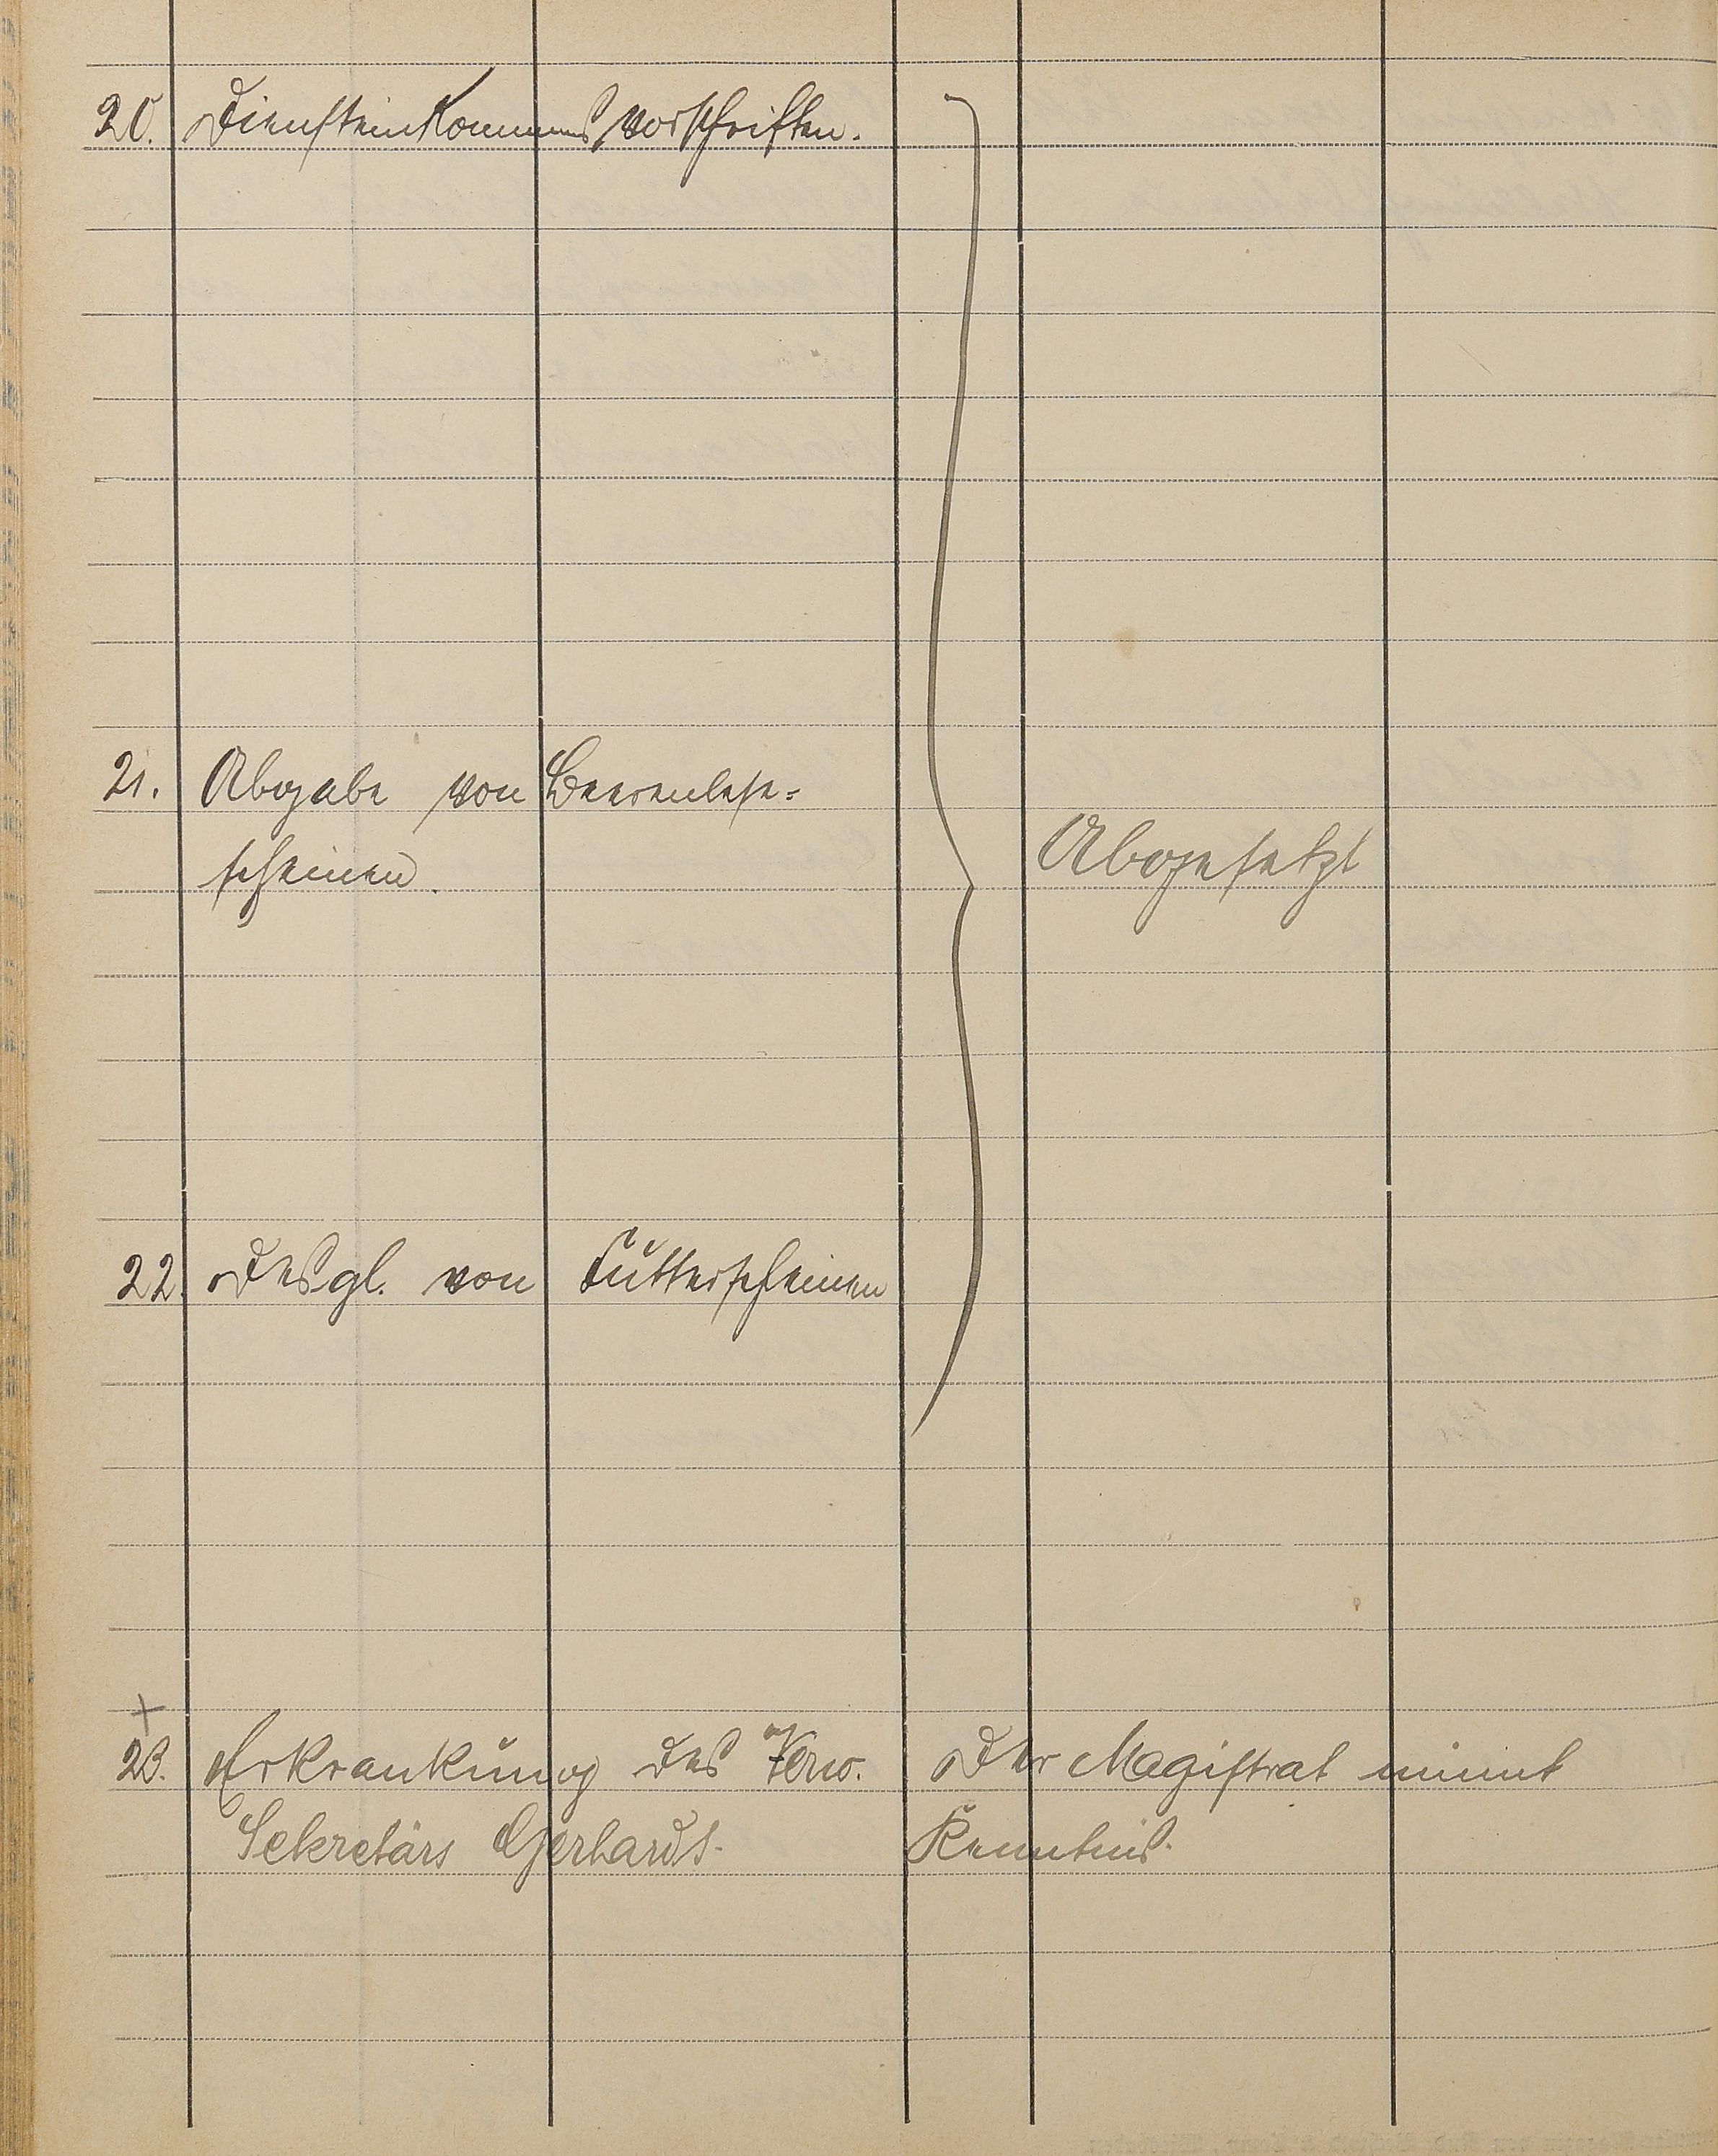 20. Diensteinkommensvorschriften.
21. Abgabe von Beerenlese-
scheinen.
Abgesetzt
22. Desgl. von Futterscheinen
23. Erkrankung des Verw. Der Magistrat nimmt
Sekretärs Gerhardt. Kenntnis.